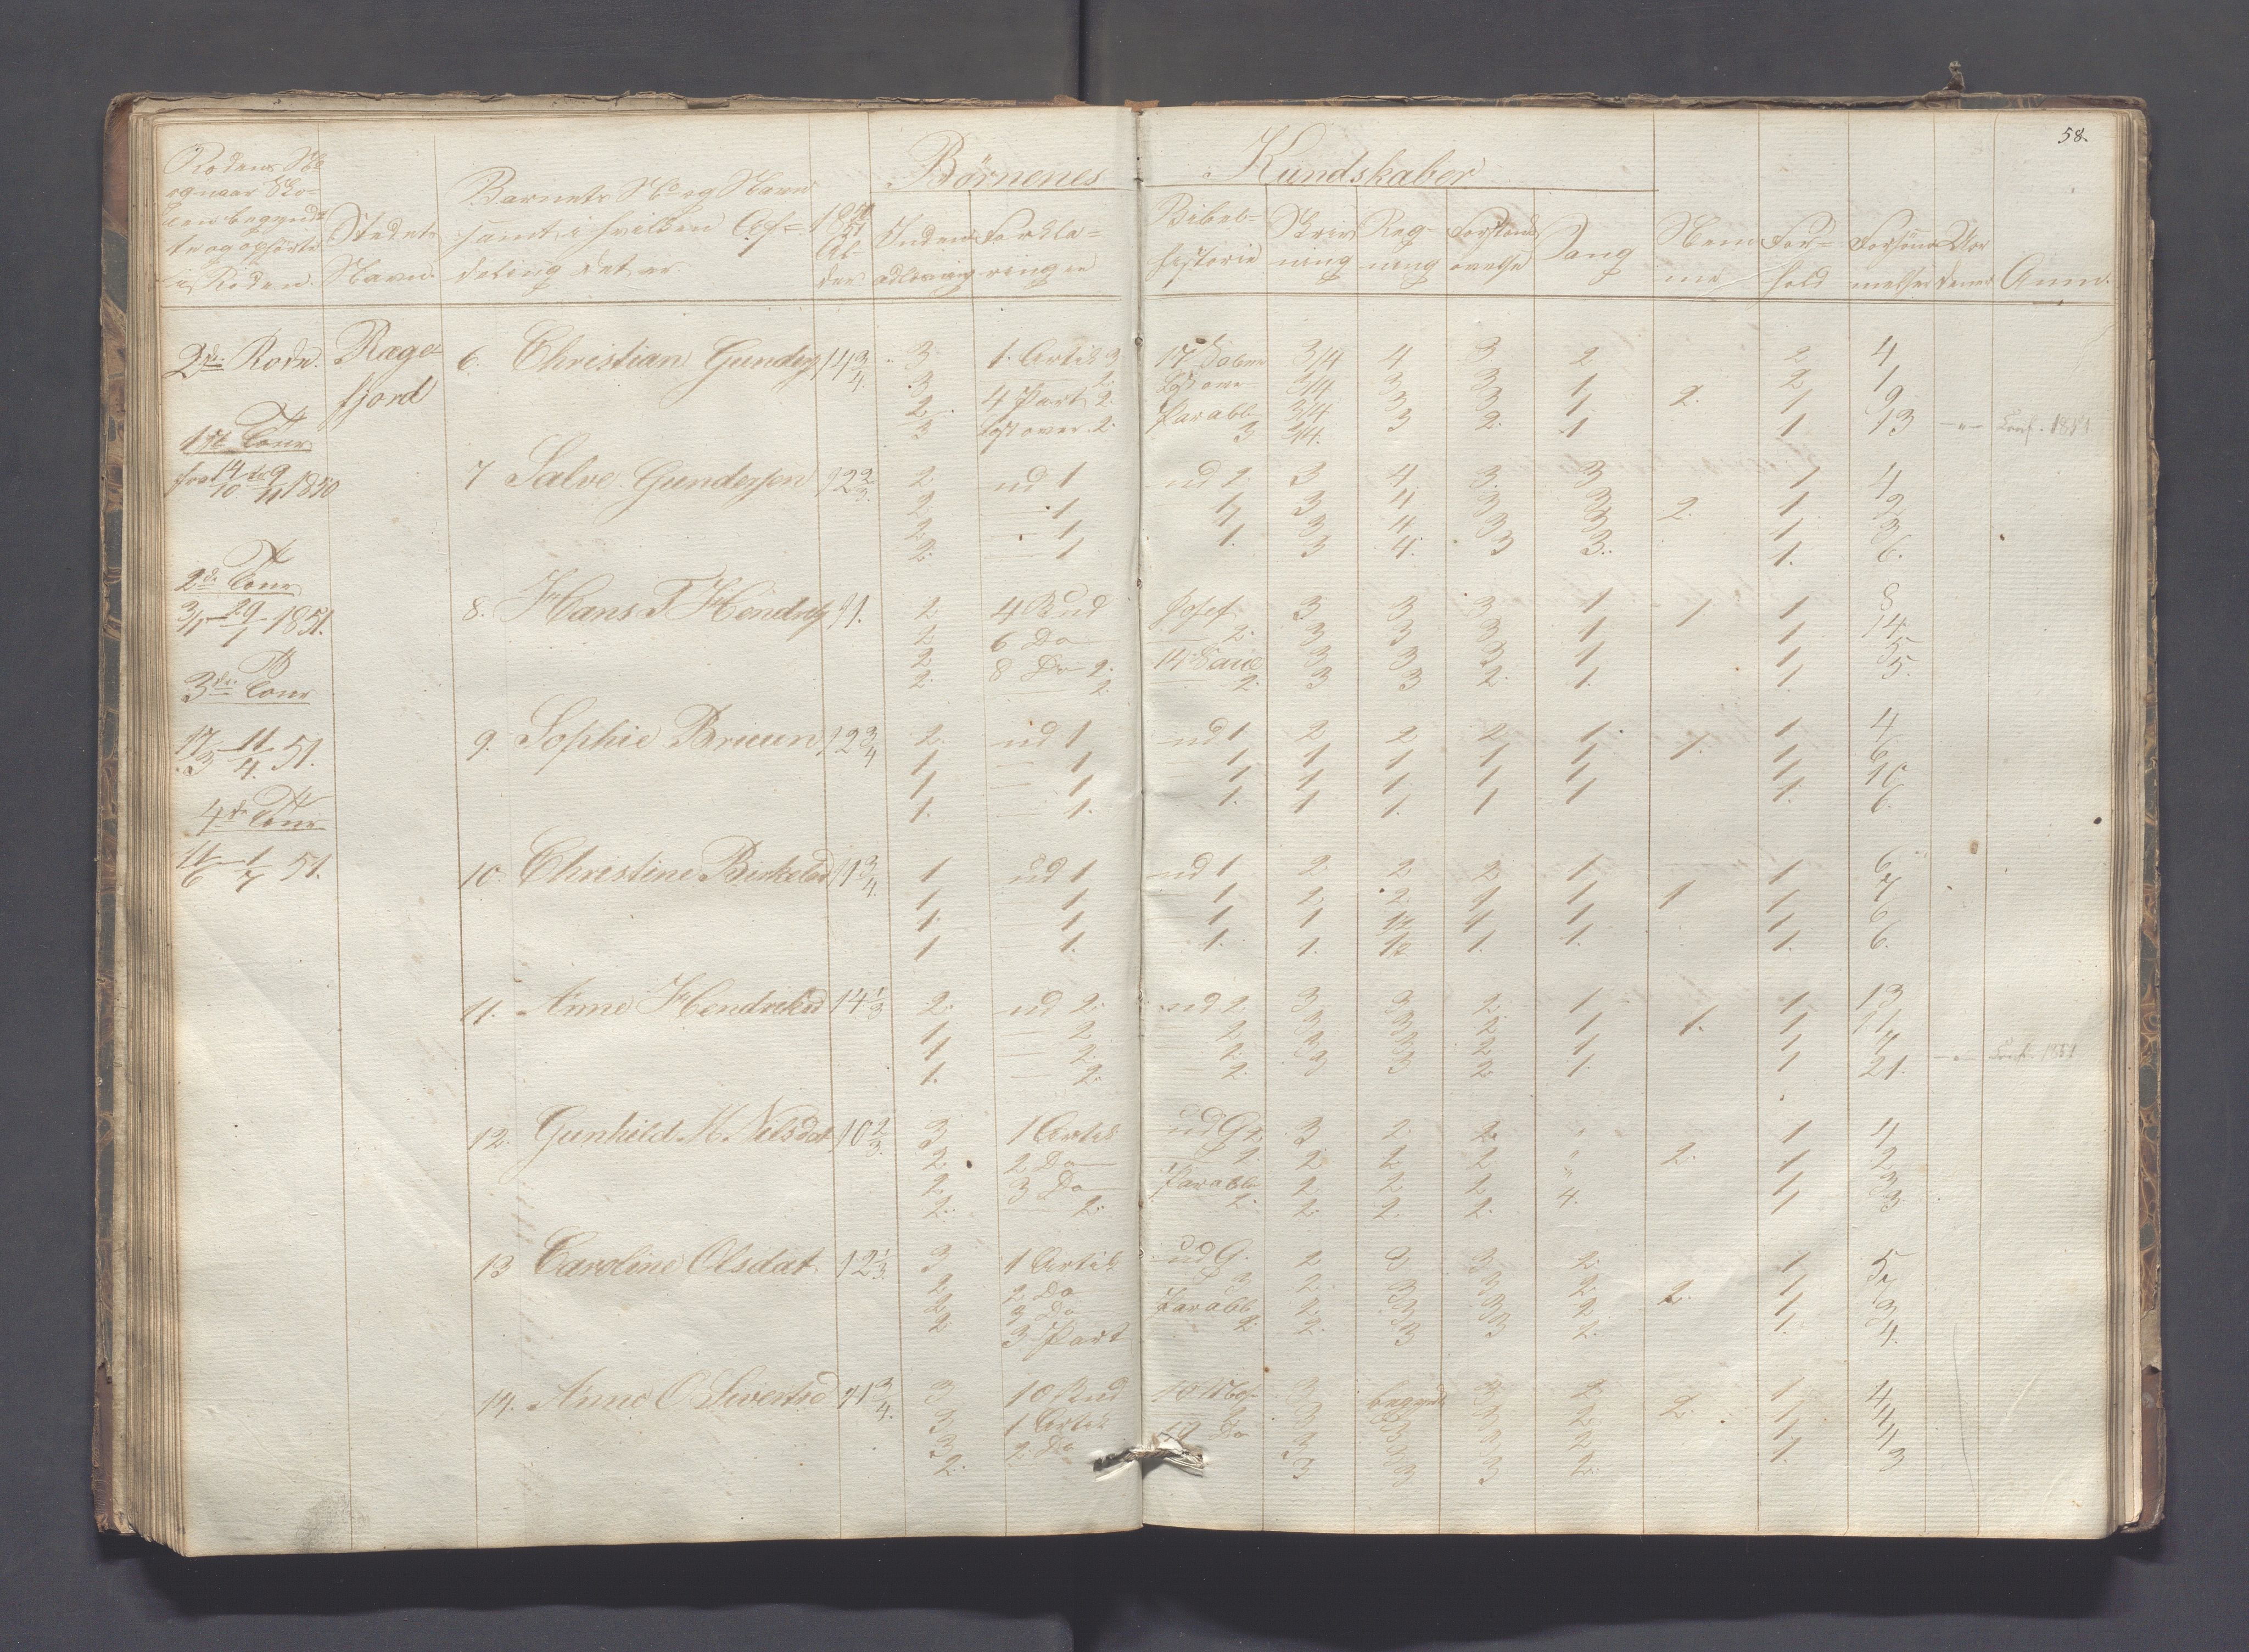 58.
Børnenes Kundskaber
Rodens No
og naar Sko-
len begyndt
te og ophørte
i Roden.
Stedets
Navn.
Barnets No og Navn
samt i hvilken Af-
deling det er
1850/51
Al-
der
Inden-
adlæsning
Forkla-
ringen
Bibel-
historie
Skriv
ning
Reg-
ning
Forstands
øvelse
Sang
Nem
me
For-
hold
Forsøm
melser
Anm.
2den Rode. Rægefjord
1ste Tour
fra 14/10 til 9/11 1850
2de Tour
3/1 - 29/1 1851.
3die Tour
17/3 - 11/4. 51.
4de Tour
11/6 - 1/7 51.
6. Christian Gunders 14 3/4. 3 1. Artik 3 3/4 4 3 2 2 4
3 3/4 3 3 1. 2. 2 1
2. 4 Part 2. Parabl 3/4 3 3 1 1 9
3 2. 3 3/4. 3 2. 1 1. 13 Conf. 1851
7 Salve Gundersen 12 2/3. 2 ud 1 ud 2. 3 4 3. 3 1 4
2 1 1 3 4 3 3 2. 1 2
2. 1 1 3 4 3 3 1 3
2. 1 1. 3 4. 3 3. 1. 6.
8. Hans T. Hendrks 11. 2 4 Bud Josef 3 3 3 1 1 1 8
2 6 Do 2. 3 3 3 1 1 14
2 8 Do 2. 3 3 3 1 1 5
2. 2. 2. 3 3 2. 1. 1. 5.
9. Sophie Bruun 12 3/4 2. ud 1 ud 1 2 2 2 1. 1. 1 4
1 1 1 1 1 1 1 1 6
1 1 1 1 1 1 1 1 10
1. 1. 1. 1 1. 1 1 1. 6.
10. Christine Birkeland 11 3/4. 1 ud 1 ud 1 2 2 2 1 1 6
1 1 1 2 2 1 1 1 1 7
1. 1 1 1 1 1 1 6
1 1. 1. 1. 1. 1. 1. 6.
11. Anne Hendriksd 14 1/3 2. ud 2. ud 2 3 3 2. 1 1. 1 13
1 2 2 3 3 2 1 1 11
1 2. 2. 3 3 2 1 1 4
1. 2. 2. 3 3 2. 1. 1 21. Conf. 1851
12. Gunhild M. Nilsdat 10 2/3. 3 1 Artik ud G. 3 2. 2. " 1 4
2. 2 Do 2. 2 2. 2 " 2. 1 2
2 3 Do Parabl 2 2 2 " 1 3
2. 2. 2. 2. 2. 2. 4. 1 3.
13 Caroline Olsdat 12 1/3. 3 1 Artik ud G. 2 3 3 2. 1 5
2 2 Do 3 2. 3 3 2. 2. 1 7
2 3 Do Parabl 2 3 3 2 1 3
2. 3 Part 2. 2. 3 3 2. 1. 4.
14. Anne O Sivertsd 11 3/4. 3 10 Bud 3 begyndt 3 2 2. 1 4
3 1 Artik 3 3 3 2 1 4
3 2. Do Do 3 3 3 2 1 4
2. 3 3 3 2. 1. 3